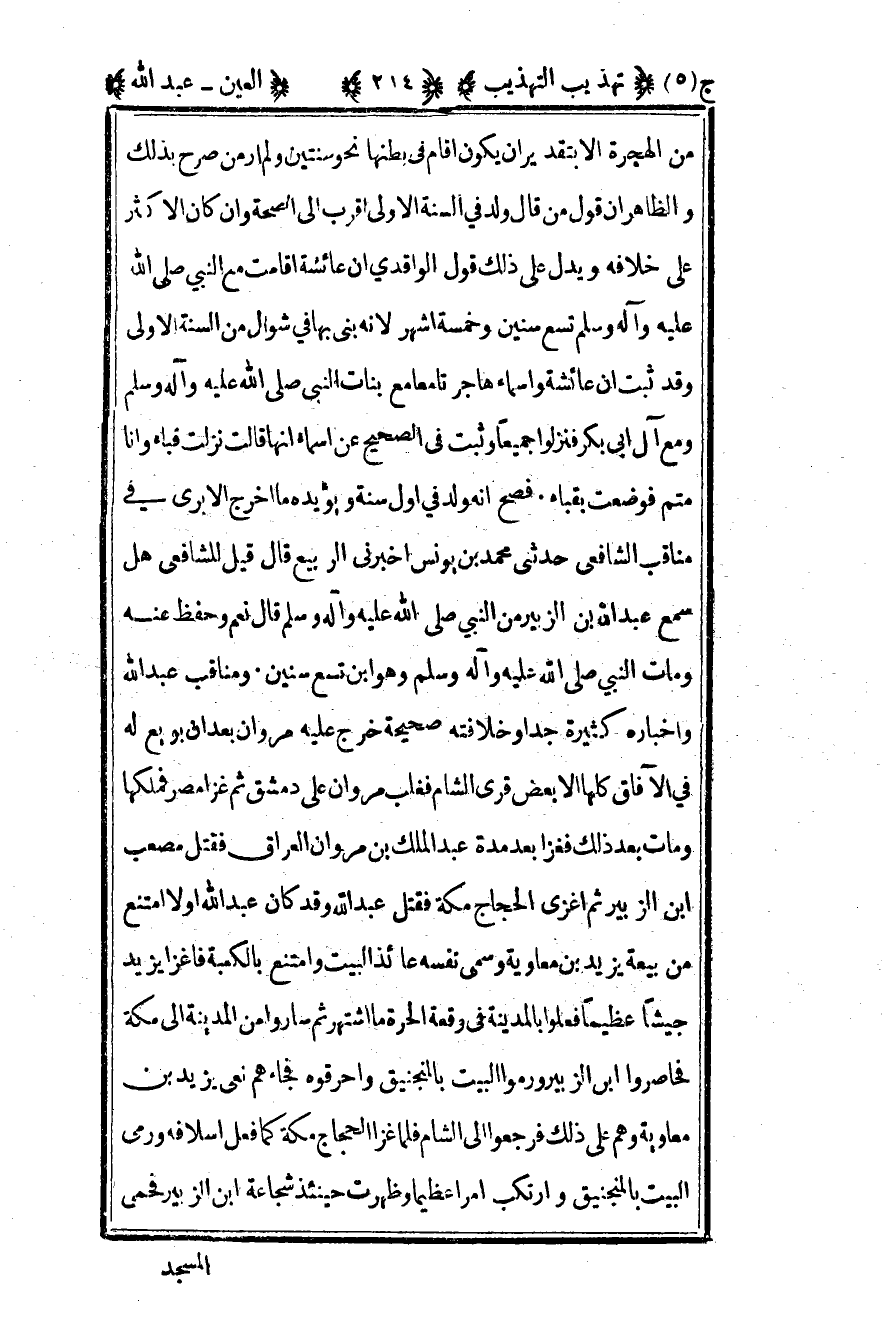 ج(٥) تهذيب التهذيب ٢١٤ العين - عبد الله
من الهجرة الا بتقدير ان يكون اقام فى بطنها نحو سنتين ولم ار من صرح بذلك
و الظاهر ان قول من قال ولد في السنة الاولى اقرب الى الصحة وان كان الاكثر
على خلافه ويدل على ذلك قول الواقدي ان عائشة اقامت مع النبي صلى الله
عليه وآله وسلم تسع سنين وخمسة اشهر لانه بنى بها في شوال من السنة الاولى
وقد ثبت ان عائشة واسماء هاجرتا معا مع بنات النبي صلى الله عليه وآله وسلم
ومع آل ابى بكر فنزلوا جميعاً وثبت فى الصحيح عن اسماء انها قالت نزلت قباء وانا
متم فوضعت بقباء . فصح انه ولد في اول سنة ويؤيده ما اخرج الابرى في
مناقب الشافعى حدثنى محمد بن يونس اخبرنى الربيع قال قيل للشافعى هل
سمع عبدالله بن الزبير من النبي صلى الله عليه وآله وسلم قال نعم وحفظ عنه
ومات النبي صلى الله عليه وآله وسلم وهو ابن تسع سنين . ومناقب عبدالله
واخباره كثيرة جدا وخلافته صحيحة خرج عليه مروان بعد ان بويع له
في الآفاق كلها الا بعض قرى الشام فغلب مروان على دمشق ثم غزا مصر فملكها
ومات بعد ذلك فغزا بعد مدة عبد الملك بن مروان العراق فقتل مصعب
ابن الزبير ثم اغزى الحجاج مكة فقتل عبدالله وقد كان عبدالله اولا امتنع
من بيعة يزيد بن معاوية وسمى نفسه عائذ البيت وامتنع بالكعبة فاغزا يزيد
جيشاً عظيماً فعلوا بالمدينة فى وقعة الحرة ما اشتهر ثم ساروا من المدينة الى مكة
فحاصروا ابن الزبير ورموا البيت بالمنجنيق واحرقوه فجاءهم نعى يزيد بن
معاوية وهم على ذلك فرجعوا الى الشام فلما غزا الحجاج مكة كما فعل اسلافه ورمى
البيت بالمنجنيق و ارتكب امرا عظيما وظهرت حينئذ شجاعة ابن الزبير فحمى
المسجد